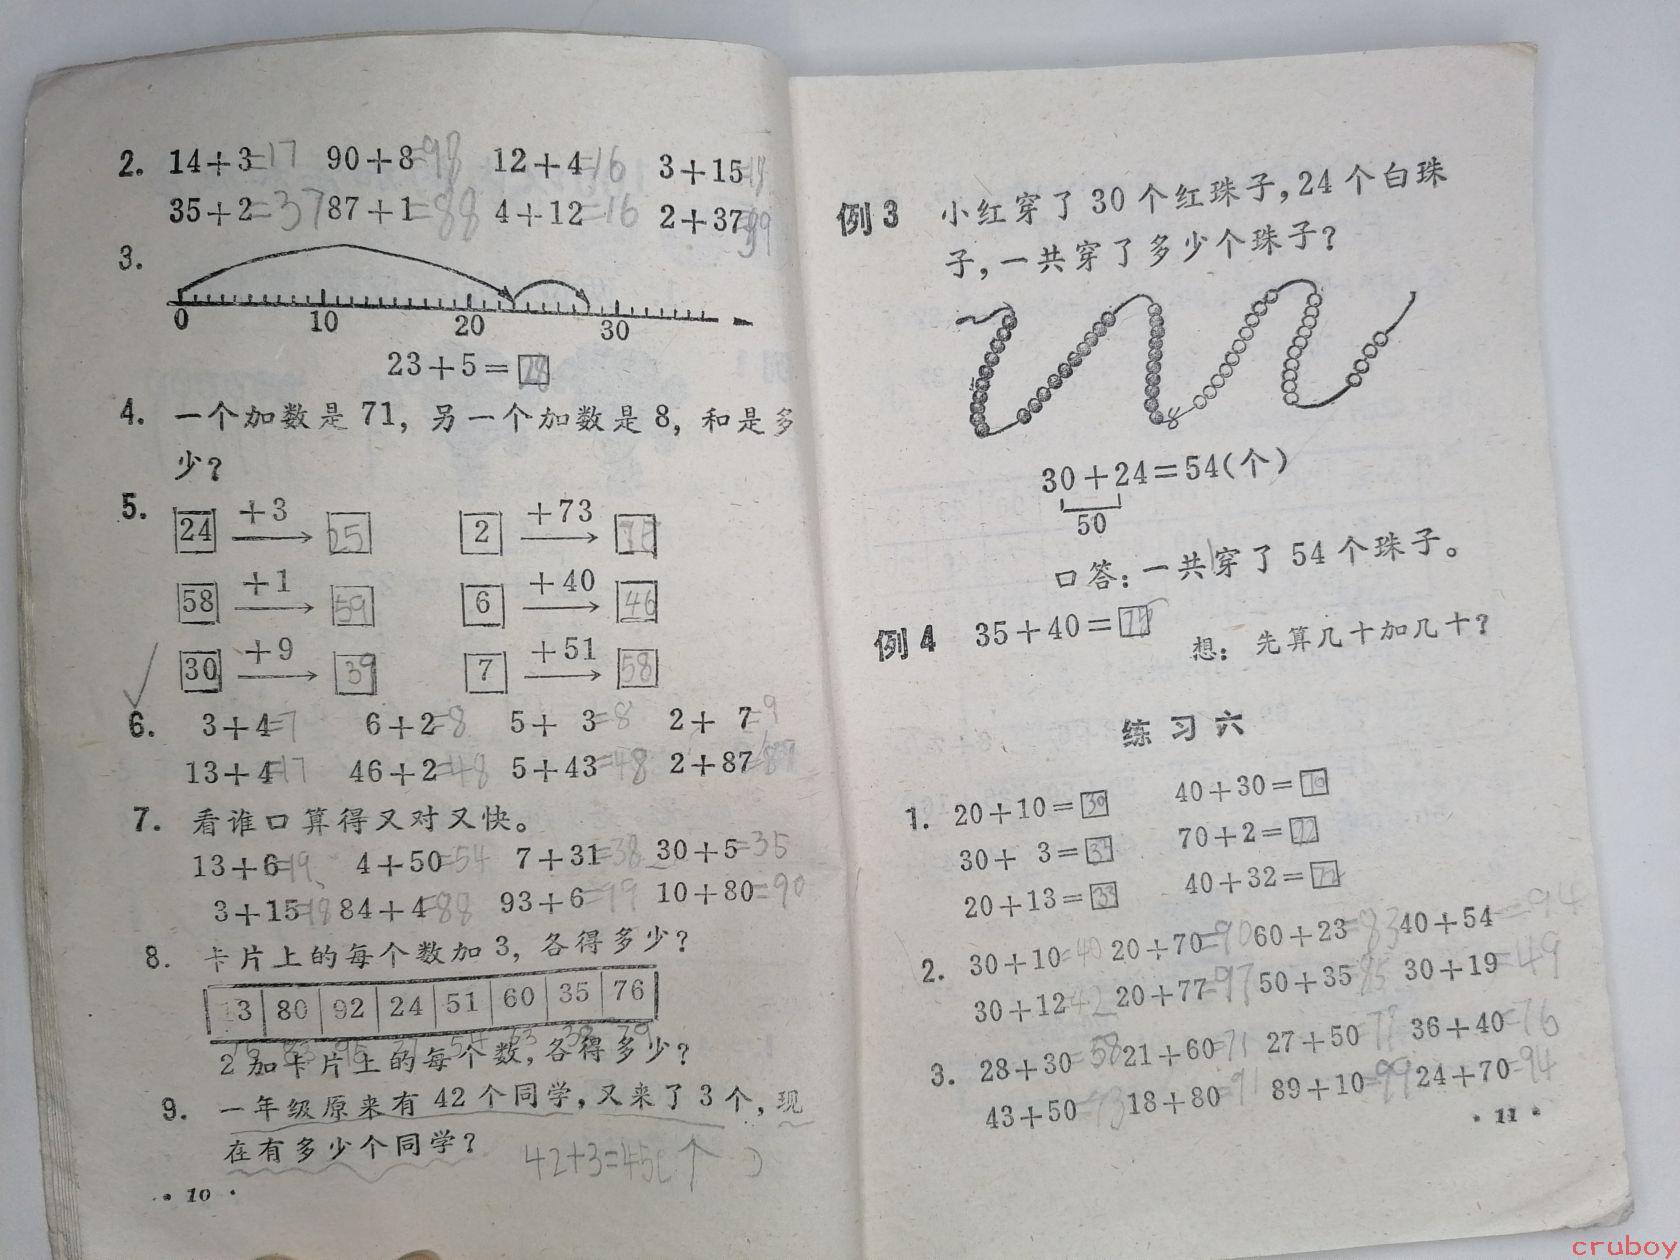 2. 14+3=17 90+8=98 12+4=16 3+15=18
35+2=37 87+1=88 4+12=16 2+37=39
3.
0 10 20 30
23+5=28
4. 一个加数是71，另一个加数是8，和是多
少？
5. 24 +3 25 2 +73 75
58 +1 59 6 +40 46
30 +9 39 7 +51 58
6. 3+4=7 6+2=8 5+ 3=8 2+ 7=9
13+4=17 46+2=48 5+43=48 2+87=89
7. 看谁口算得又对又快。
13+6=19 4+50=54 7+31=38 30+5=35
3+15=18 84+4=88 93+6=99 10+80=90
8. 卡片上的每个数加3，各得多少？
13 80 92 24 51 60 35 76
83 95 54 63 38 79
2加卡片上的每个数，各得多少？
9. 一年级原来有42个同学，又来了3个，现
在有多少个同学？
42+3=45(个)
·10·
例3 小红穿了30个红珠子，24个白珠
子，一共穿了多少个珠子？
30+24=54(个)
50
口答：一共穿了54个珠子。
例4 35+40=75
想：先算几十加几十？
练习六
1. 20+10=30 40+30=70
30+ 3=33 70+2=72
20+13=33 40+32=72
2. 30+10=40 20+70=90 60+23=83 40+54=94
30+12=42 20+77=97 50+35=85 30+19=49
3. 28+30=58 21+60=71 27+50=77 36+40=76
43+50=93 18+80=91 89+10=99 24+70=94
·11·
cruboy